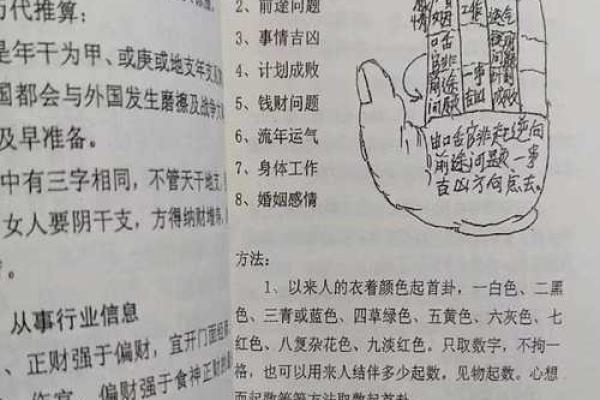 代推算；
是年干为甲、或庚或地支年支
国都会与外国发生磨擦及战争
及早准备。
中有三字相同，不管天干地支
女人要阴干支，方得纳财增寿
从事行业信息
、正财强于偏财，宜开门面经
偏财强于食神正财
2、前途问题
3、事情吉凶
4、计划成败
5、钱财问题
6、流年运气
7、身体工作
8、婚姻感情
情
姻
工作
运气
口舌
官非
前途
问题
一事
吉凶
钱财
问题
计划
成败
口舌官非起逆向
前途问题一事
吉凶方向点去。
方法：
1、以来人的衣着颜色起首卦，一白色、二黑
色、三青或蓝色、四草绿色、五黄色、六灰色、七
红色、八复杂花色、九淡红色。只取数字，不拘一
格，也可以用来人结伴多少起数，见物起数。心想
而起数等等方法取数起首卦